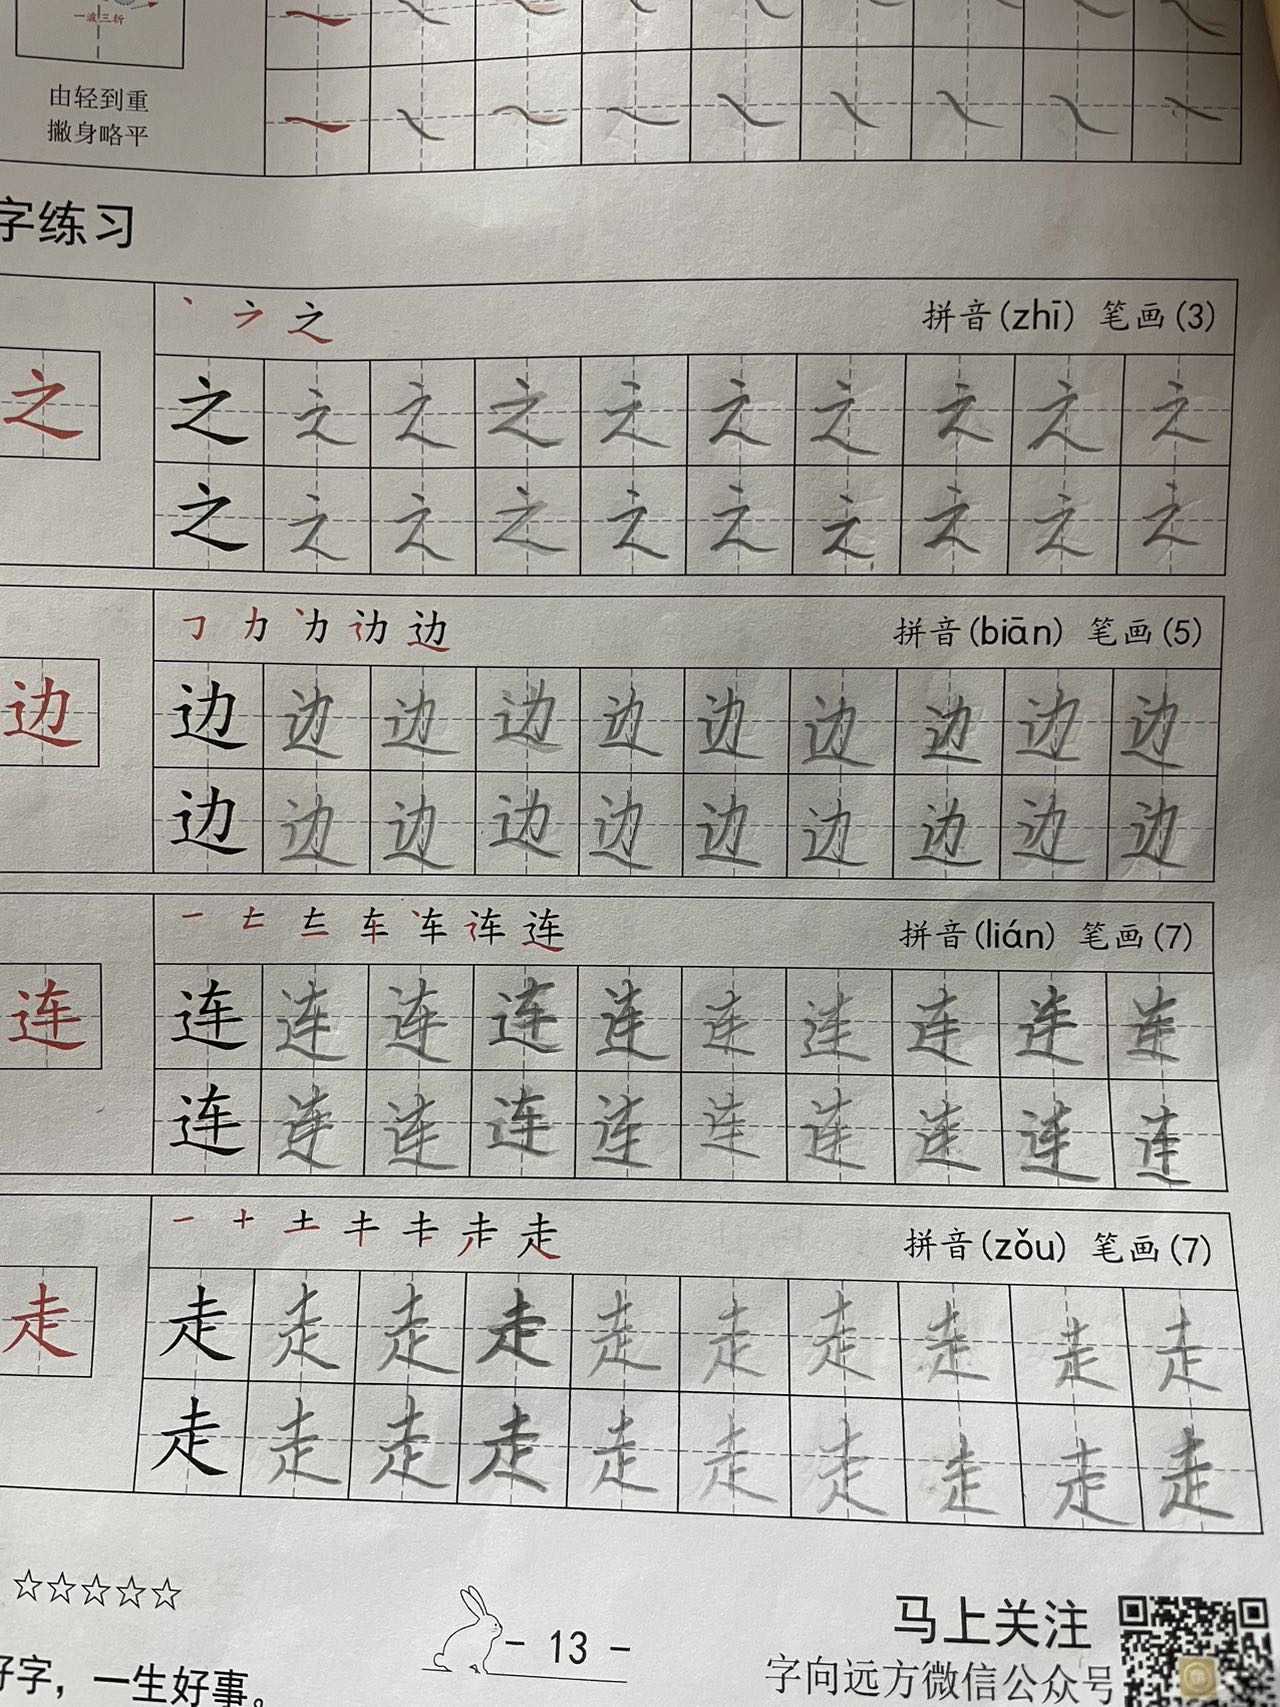 一波三折
由轻到重
撇身略平
字练习
之 拼音(zhī) 笔画(3)
之 之 之 之 之 之 之 之 之 之 之
之 之 之 之 之 之 之 之 之 之
边 拼音(biān) 笔画(5)
边 边 边 边 边 边 边 边 边 边 边
边 边 边 边 边 边 边 边 边 边
连 拼音(lián) 笔画(7)
连 连 连 连 连 连 连 连 连 连 连
连 连 连 连 连 连 连 连 连 连
走 拼音(zǒu) 笔画(7)
走 走 走 走 走 走 走 走 走 走 走
走 走 走 走 走 走 走 走 走 走
☆☆☆☆☆
- 13 -
马上关注
好字，一生好事。
字向远方微信公众号